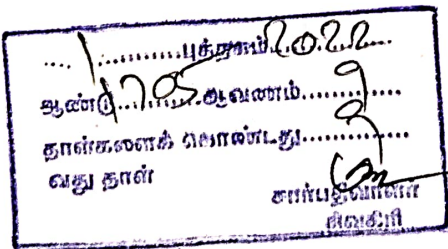 1 புத்தகம் 2022
ஆண்டு 1705 ஆவணம் 9
தாள்களைக் கொண்டது
வது தாள்
சார்பதிவாளர்
சிவகிரி